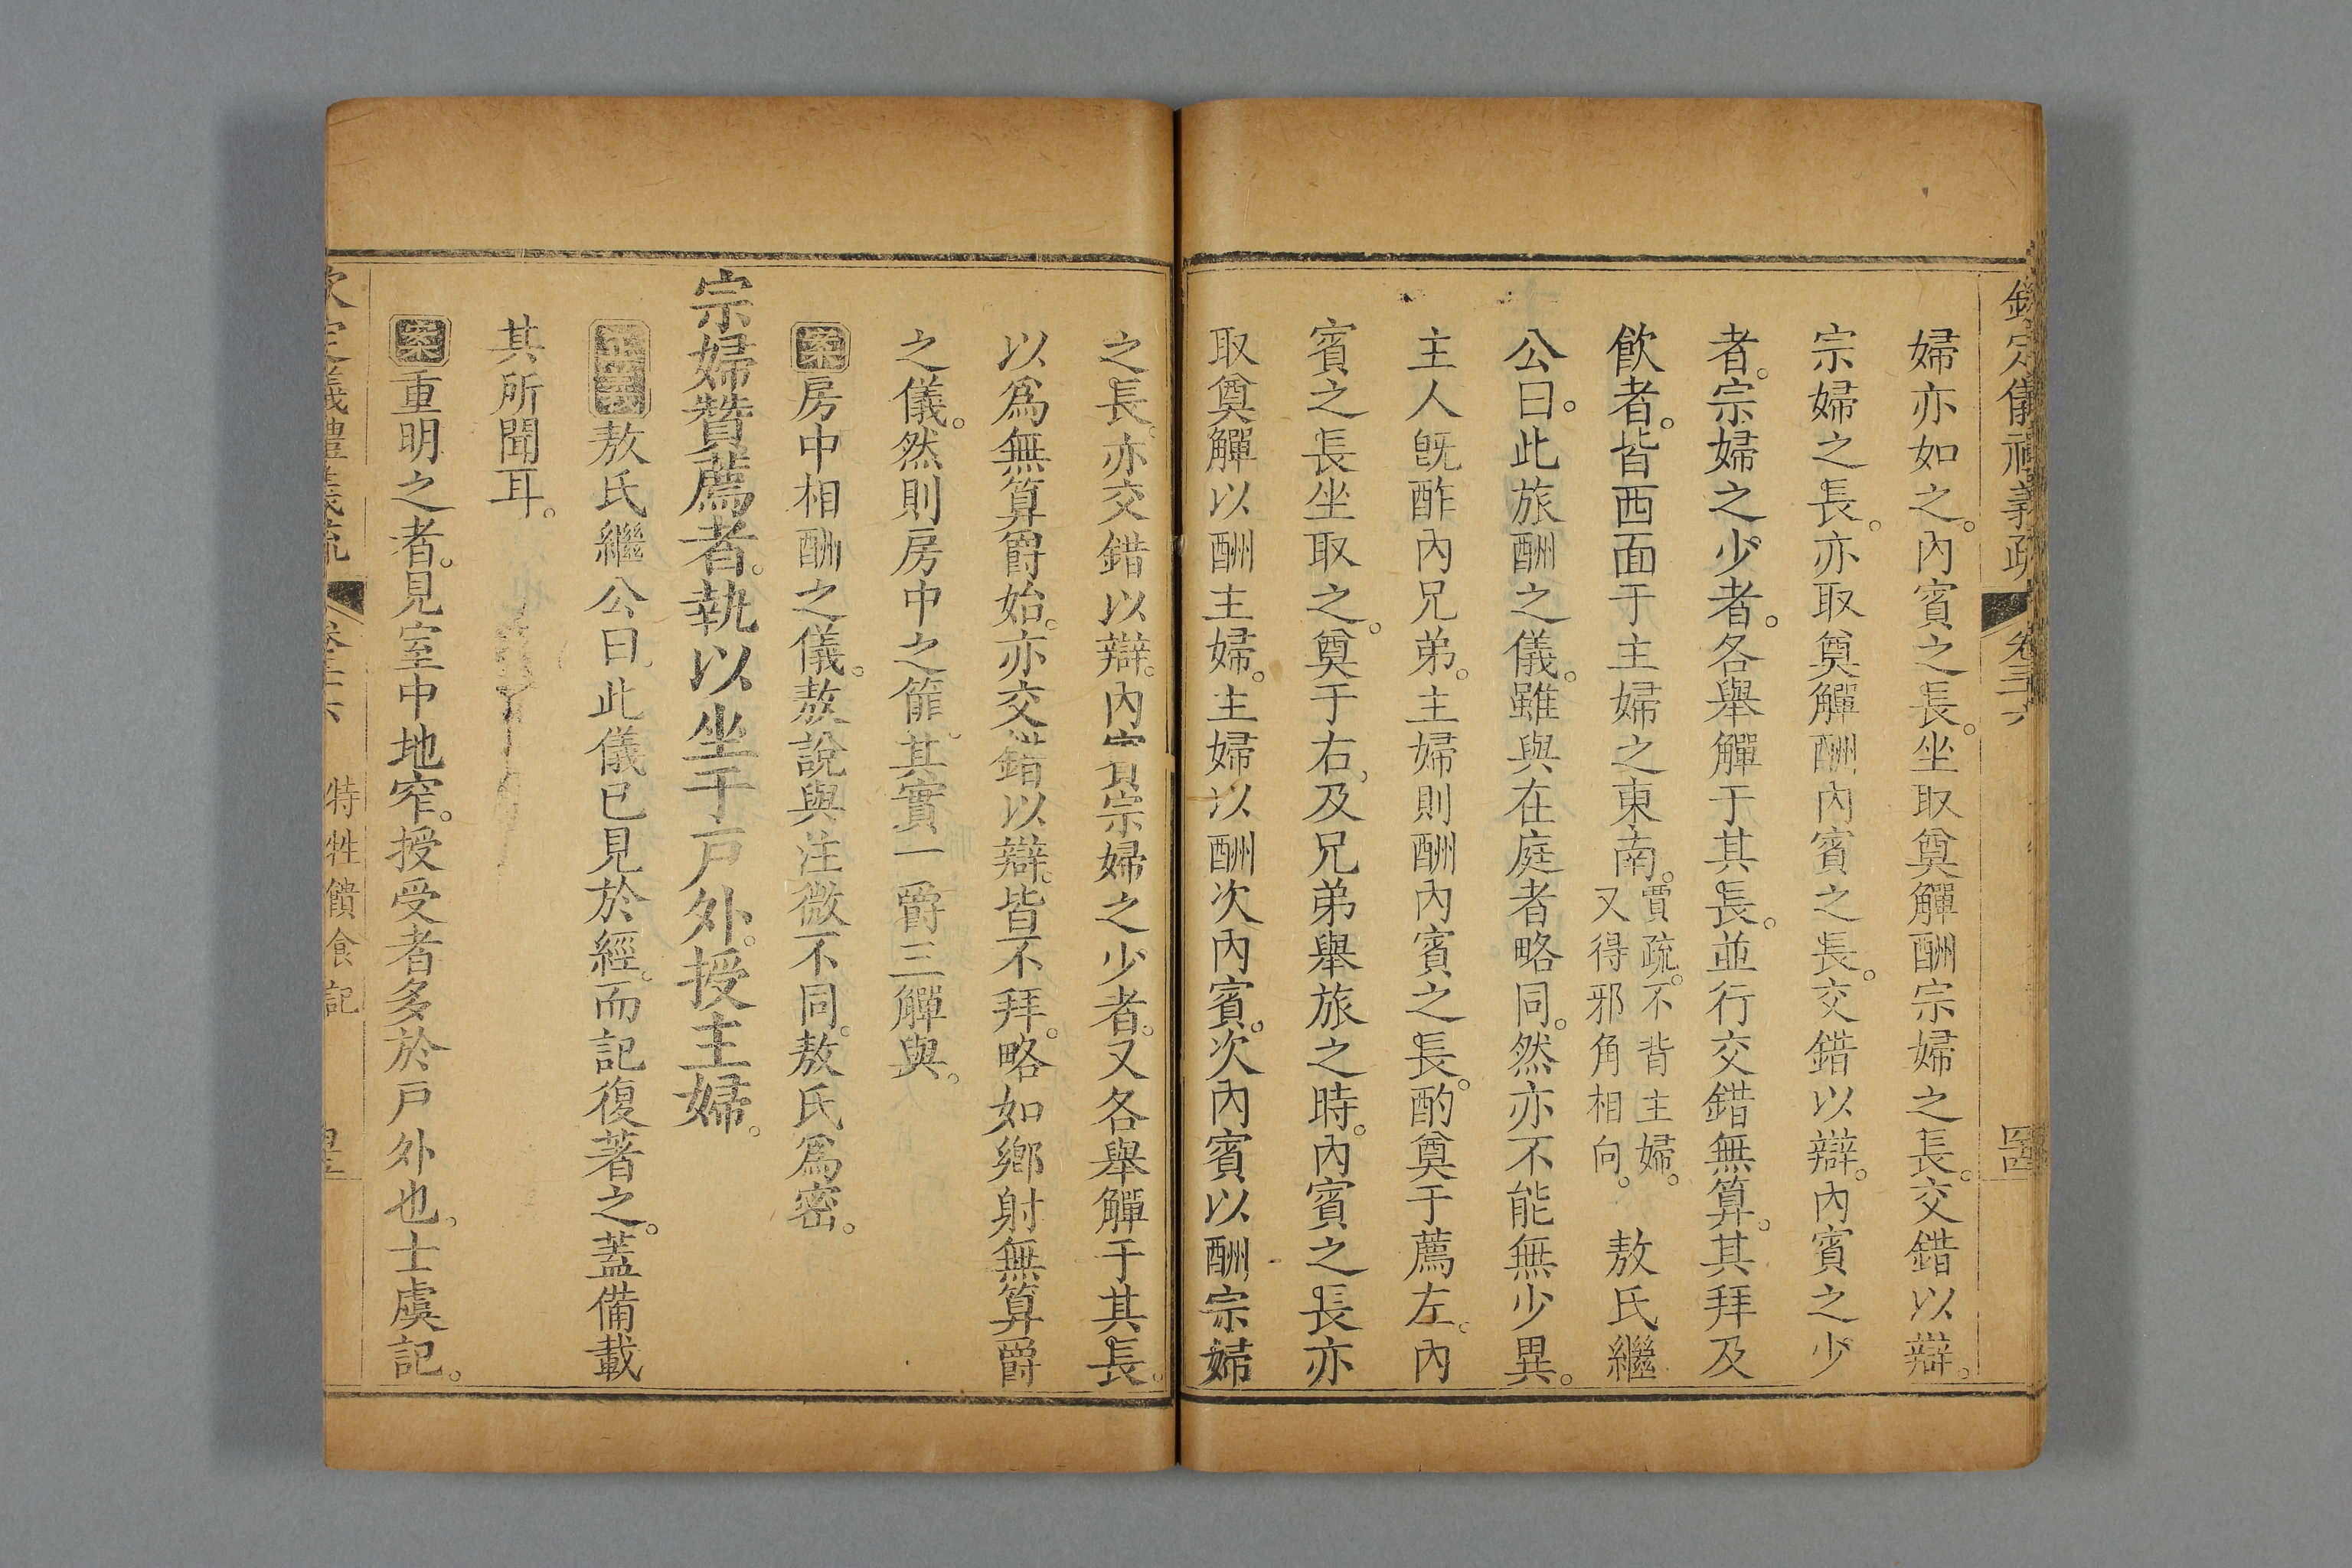 欽定儀禮義疏 卷三六 四四
婦亦如之。內賓之長。坐取奠觶酬宗婦之長。交錯以辯。
宗婦之長。亦取奠觶酬內賓之長。交錯以辯。內賓之少
者。宗婦之少者。各舉觶于其長。並行交錯無算。其拜及
飲者。皆西面于主婦之東南。賈疏。不背主婦。又得邪角相向。 敖氏繼
公曰。此旅酬之儀。雖與在庭者略同。然亦不能無少異。
主人旣酢內兄弟。主婦則酬內賓之長。酌奠于薦左。內
賓之長坐取之。奠于右。及兄弟舉旅之時。內賓之長亦
取奠觶以酬主婦。主婦以酬次內賓。次內賓以酬宗婦
之長。亦交錯以辯。內賓宗婦之少者。又各舉觶于其長。
以爲無算爵始。亦交錯以辯。皆不拜。略如鄉射無算爵
之儀。然則房中之篚。其實一爵三觶與。
案房中相酬之儀。敖說與注微不同。敖氏爲密。
宗婦贊薦者。執以坐于戶外。授主婦。
敖氏繼公曰。此儀已見於經。而記復著之。蓋備載
其所聞耳。
案重明之者。見室中地窄。授受者多於戶外也。士虞記。
欽定儀禮義疏 卷三六 特牲饋食記